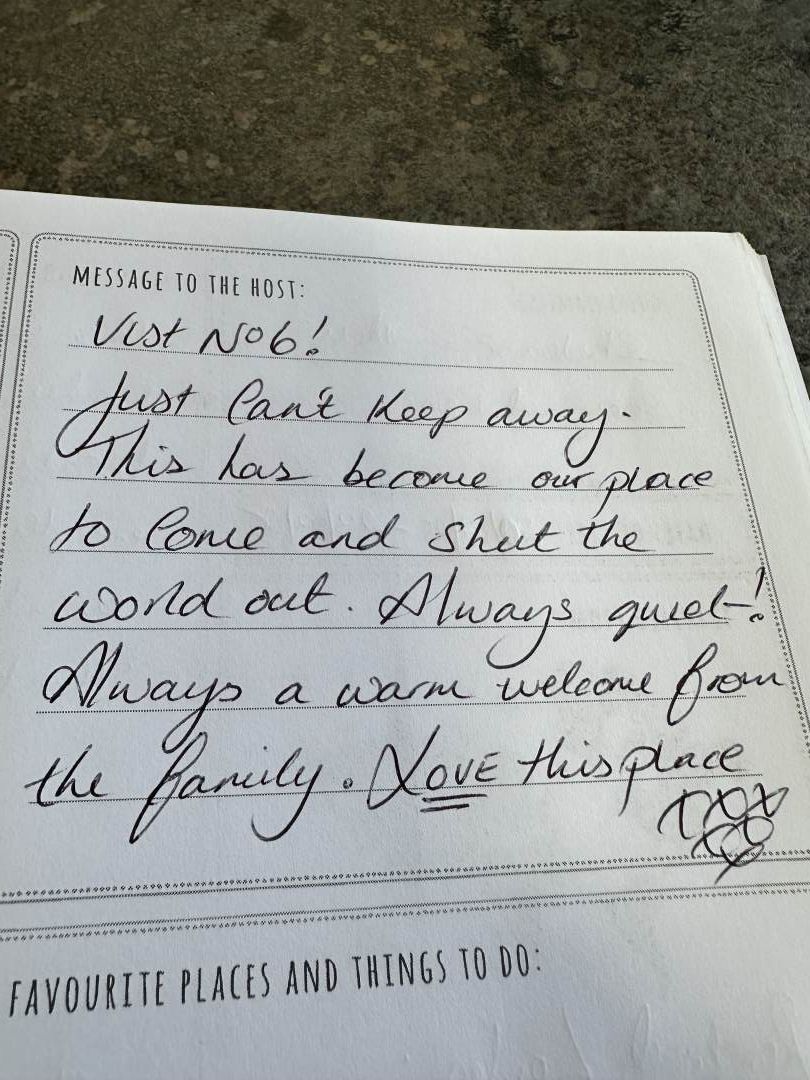 MESSAGE TO THE HOST:
Visit No 6!
Just Can't Keep away.
This has become our place
to Come and Shut the
world out. Always quiet!
Always a warm welcome from
the family. LOVE this place
xxx
xx
FAVOURITE PLACES AND THINGS TO DO: